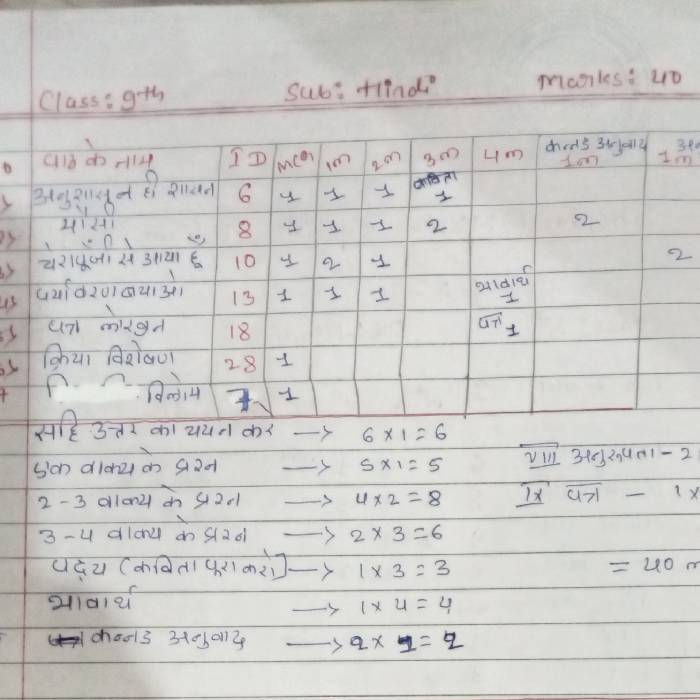 Class: 9th Sub: Hindi Marks: 40
पाठ के नाम ID MCQ 1m 2m 3m 4m कन्नड अनुवाद 1m 1m
अनुशासन ही शासन 6 1 1 1 कविता 1
मौसी 8 1 1 1 2 2
चेरापूँजी से आया हूँ 10 1 2 1 2
पर्यावरण बचाओ 13 1 1 1 भावार्थ 1
पत्र लेखन 18 पत्र 1
क्रिया विशेषण 28 1
विलोम 1
सहि उत्तर का चयन कर → 6 x 1 = 6
एक वाक्य के प्रश्न → 5 x 1 = 5 VIII अनुरूपता - 2
2-3 वाक्य के प्रश्न → 4 x 2 = 8 IX पत्र - 1x
3-4 वाक्य के प्रश्न → 2 x 3 = 6
पद्य (कविता पूरा करो) → 1 x 3 = 3 = 40 m
भावार्थ → 1 x 4 = 4
कन्नड अनुवाद → 2 x 1 = 2